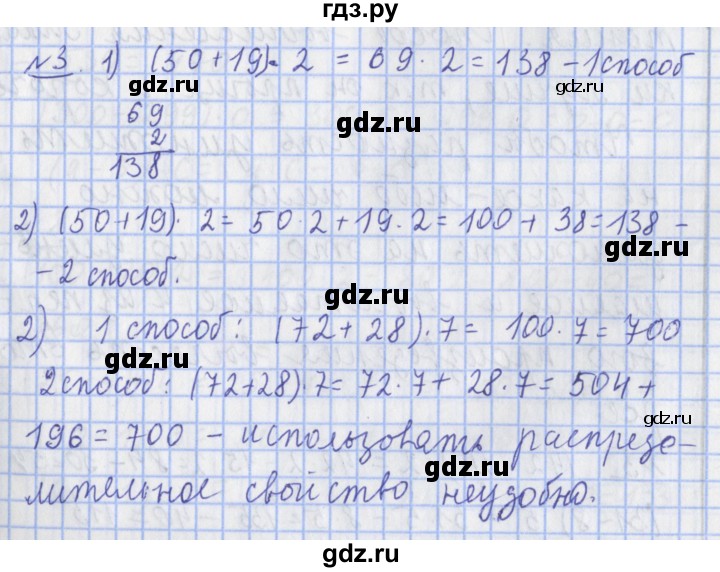 гдз.ру
№3. 1) (50+19)·2 = 69·2 = 138 – 1 способ
gdz.ru gdz.ru
69
2
138
gdz.ru
2) (50+19)·2 = 50·2 + 19·2 = 100 + 38 = 138 –
gdz.ru
– 2 способ.
gdz.ru
2) 1 способ: (72 + 28)·7 = 100·7 = 700
gdz.ru
2 способ: (72+28)·7 = 72·7 + 28·7 = 504 +
gdz.ru
196 = 700 – использовать распреде-
gdz.ru
лительное свойство неудобно.
gdz.ru
gdz.ru